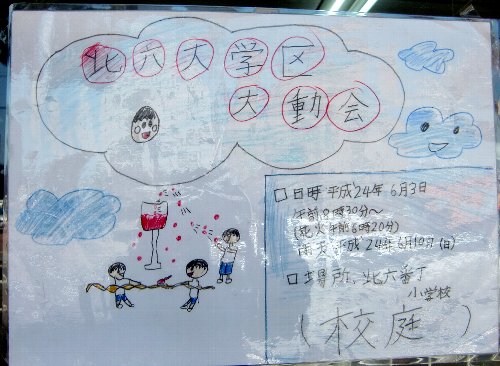 北六大学区
大動会
□日時 平成24年 6月3日
午前8時30分～
(花火 午前6時20分)
雨天 平成24年6月10日(日)
□場所、北六番丁
小学校
(校庭)